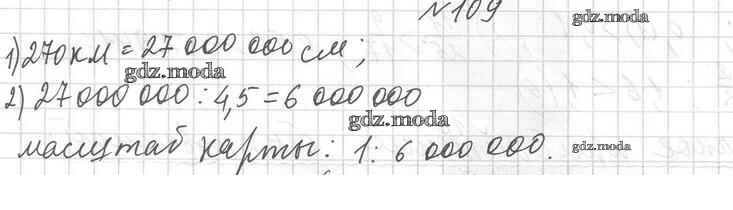 №109
gdz.moda
1) 270 км = 27 000 000 см;
gdz.moda
2) 27 000 000 : 4,5 = 6 000 000
gdz.moda
масштаб карты: 1: 6 000 000.
gdz.moda